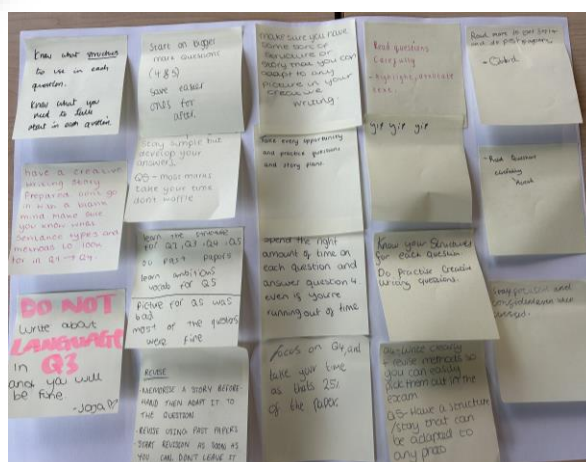 Know what structure
to use in each
question.
Know what you
need to talk
about in each question.
have a creative
writing story
prepared. Dont go
in with a blank
mind make sure
you know what
sentence types and
methods to look
for in Q1 → Q4
DO NOT
write about
LANGUAGE
in Q3
and you will
be fine
Start on bigger
mark questions
(4 & 5)
save easier
ones for
after.
Stay simple but
develop your
answers
Q5 - most marks
take your time
dont waffle
learn the structure
for Q2, Q3, Q4, Q5
Do Past Papers
learn ambitious
vocab for Q5
Picture for Q5 was
bad
most of the
were fine
REVISE
MEMORISE A STORY BEFORE-
HAND THEN ADAPT IT TO
THE QUESTION
- REVISE USING PAST PAPERS
- START REVISION AS SOON AS
YOU CAN. DON'T LEAVE IT
make sure you have
some sort of
structure or
story that you can
adapt to any
picture in your
creative
writing.
Take every opportunity
and practice questions
and story plans
spend the right
amount of time on
each question and
answer question 4
even if you're
running out of time
focus on Q4, and
take your time
as thats 25%
of the paper.
Read questions
carefully
- highlight, annotate
text.
yip yip yip
Know your Structures
for each question
Do practice Creative
writing questions.
write clearly
- revise methods so
you can easily
pick them out in the
exam
Q5 - Have a structure
/story that can
be adapted to
any photo
Read more
and do past papers
- Read Question
carefully